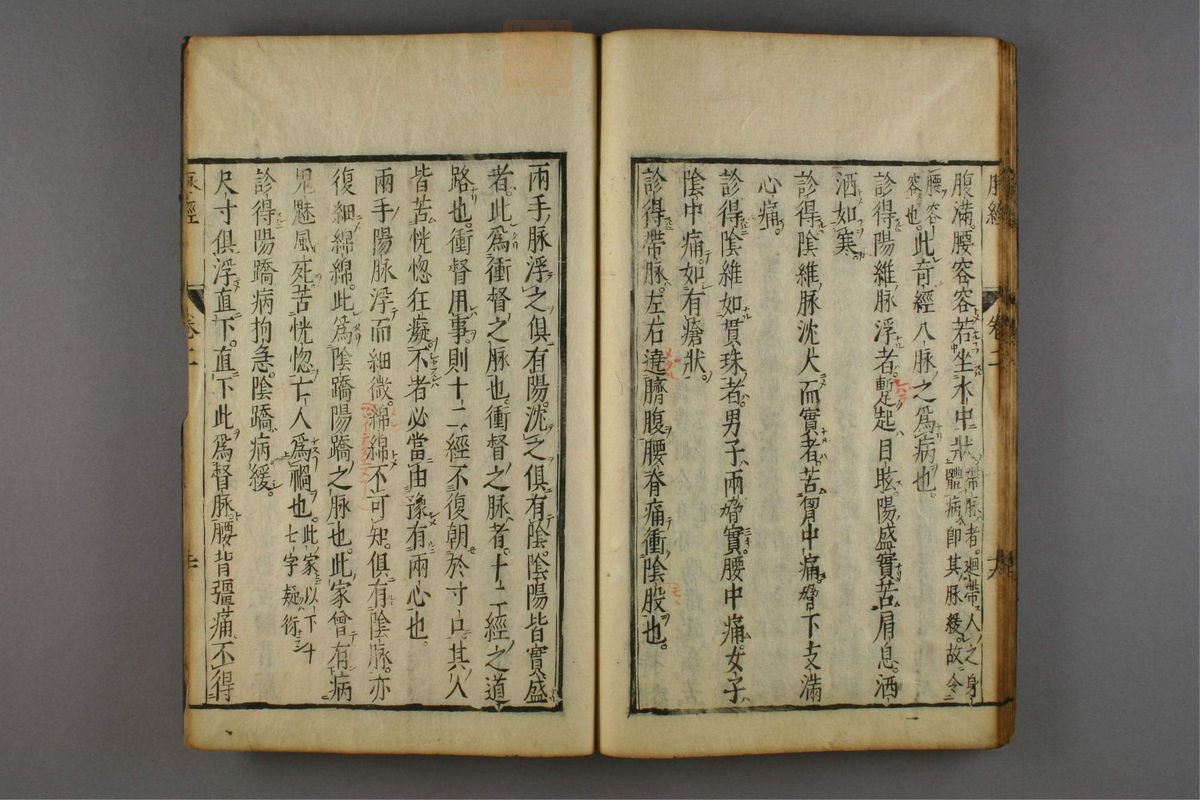 腹滿。腰容容若坐水中狀帶脈者。廻帶人之身體病卽其脈緩。故令
腰容容也。此奇經八脈之爲病也。
診得陽維脈浮者。蹔起目眩。陽盛實苦肩息。洒
洒如寒。
診得陰維脈沈大而實者。苦胷中痛。脅下支滿
心痛。
診得陰維如貫珠者。男子兩脅實。腰中痛。女子
陰中痛。如有瘡狀。
診得帶脈。左右遶臍腹腰脊痛衝陰股也。
兩手脈浮之俱有陽。沈之俱有陰。陰陽皆實盛
者。此爲衝督之脈也。衝督之脈者。十二經之道
路也。衝督用事。則十二經不復朝於寸口。其人
皆苦恍惚狂癡。不者必當由豫有兩心也。
兩手陽脈浮而細微。綿綿不可知。俱有陰脈。亦
復細綿綿。此爲陰蹻陽蹻之脈也。此家曾有病
鬼魅風死。苦恍惚。亡人爲禍也。此家以下十七字疑衍
診得陽蹻病拘急。陰蹻病緩。
尺寸俱浮直下。直下此爲督脈。腰背彊痛不得
脈經
卷二